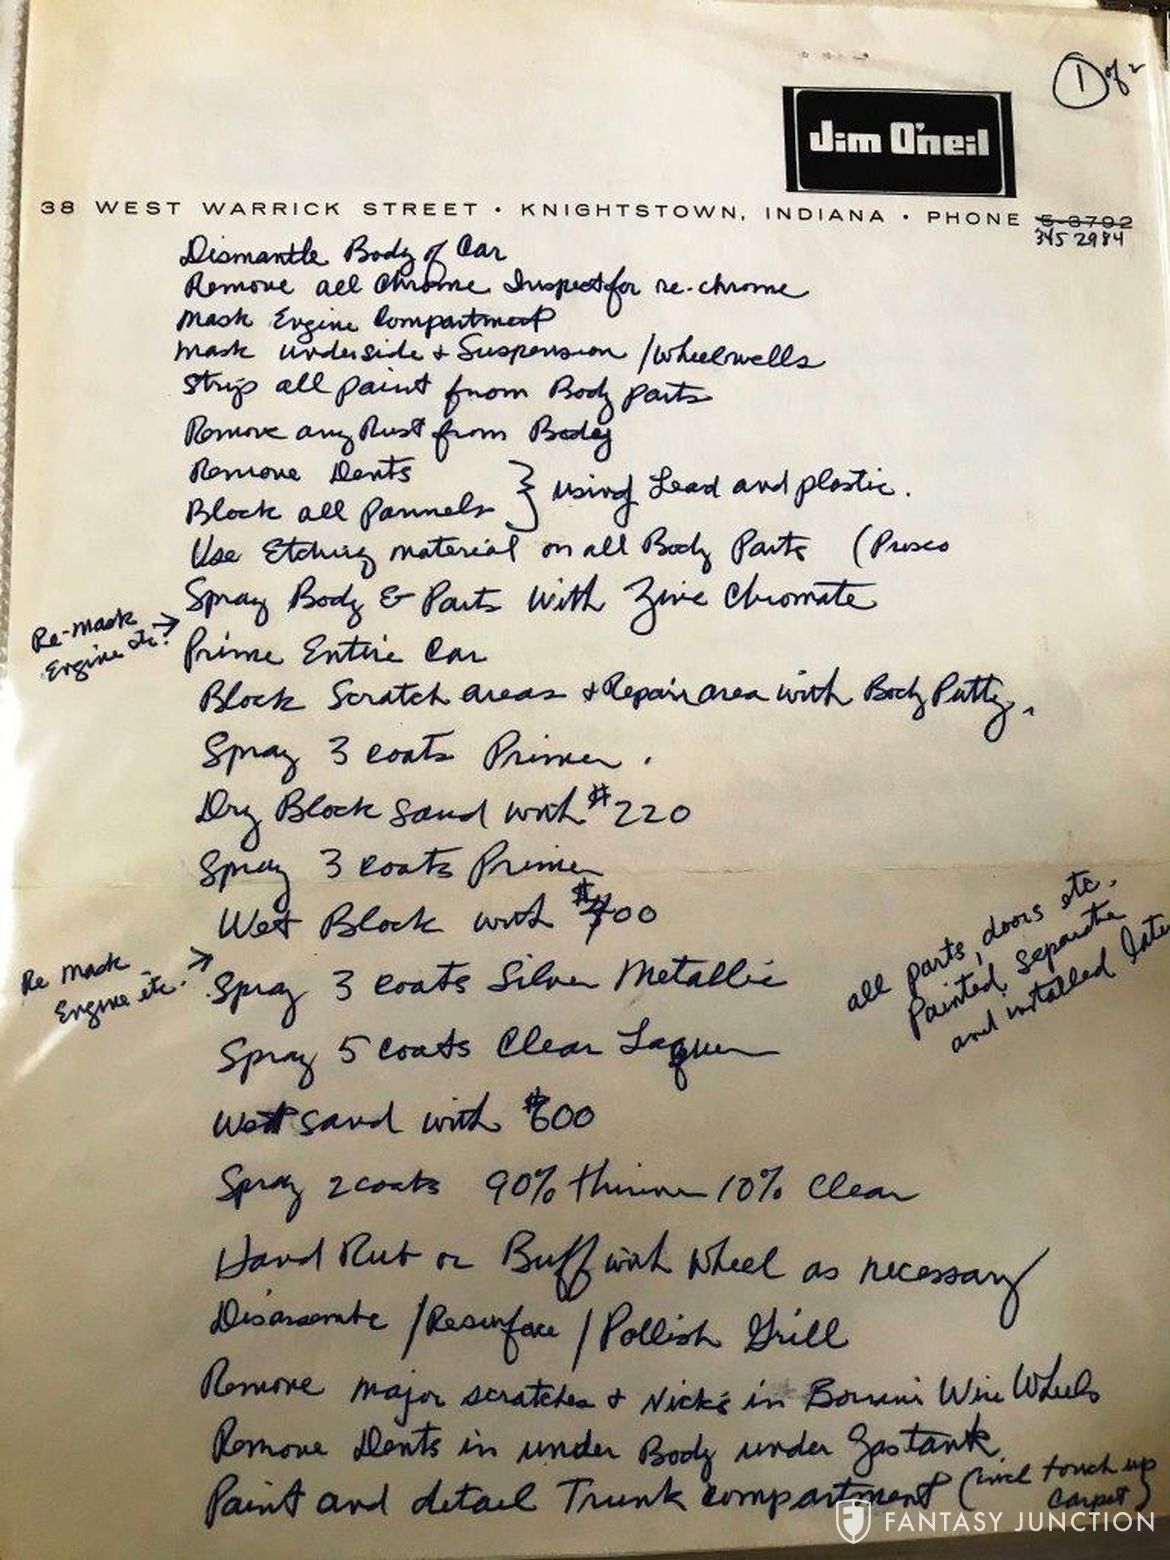 1 of 2
Jim O'neil
38 WEST WARRICK STREET • KNIGHTSTOWN, INDIANA • PHONE 5-3792
345 2984
Dismantle Body of Car
Remove all Chrome Inspect for re-chrome
Mask Engine Compartment
Mask underside + Suspension / Wheelwells
Strip all paint from Body parts
Remove any Rust from Body
Remove Dents
Block all Pannels } using Lead and plastic.
Use Etching material on all Body Parts (Preco
Spray Body & Parts With Zinc Chromate
Re-Mask Engine etc. →
Prime Entire Car
Block Scratch areas + Repair area with Body Putty.
Spray 3 coats Primer.
Dry Block Sand with #220
Spray 3 coats Primer
Wet Block with #400
Re Mask Engine etc. →
Spray 3 coats Silver Metallic
all parts, doors etc.
Painted separate
and installed later
Spray 5 coats Clear Laquer
Wet sand with #600
Spray 2 coats 90% thinner 10% Clear
Hand Rub or Buff with Wheel as necessary
/Resurface / Pollish Grill
Remove major scratches + Nicks in Borrani Wire Wheels
Remove Dents in under Body under Gastank
Paint and detail Trunk compartment (incl touch up
carpet)
FANTASY JUNCTION